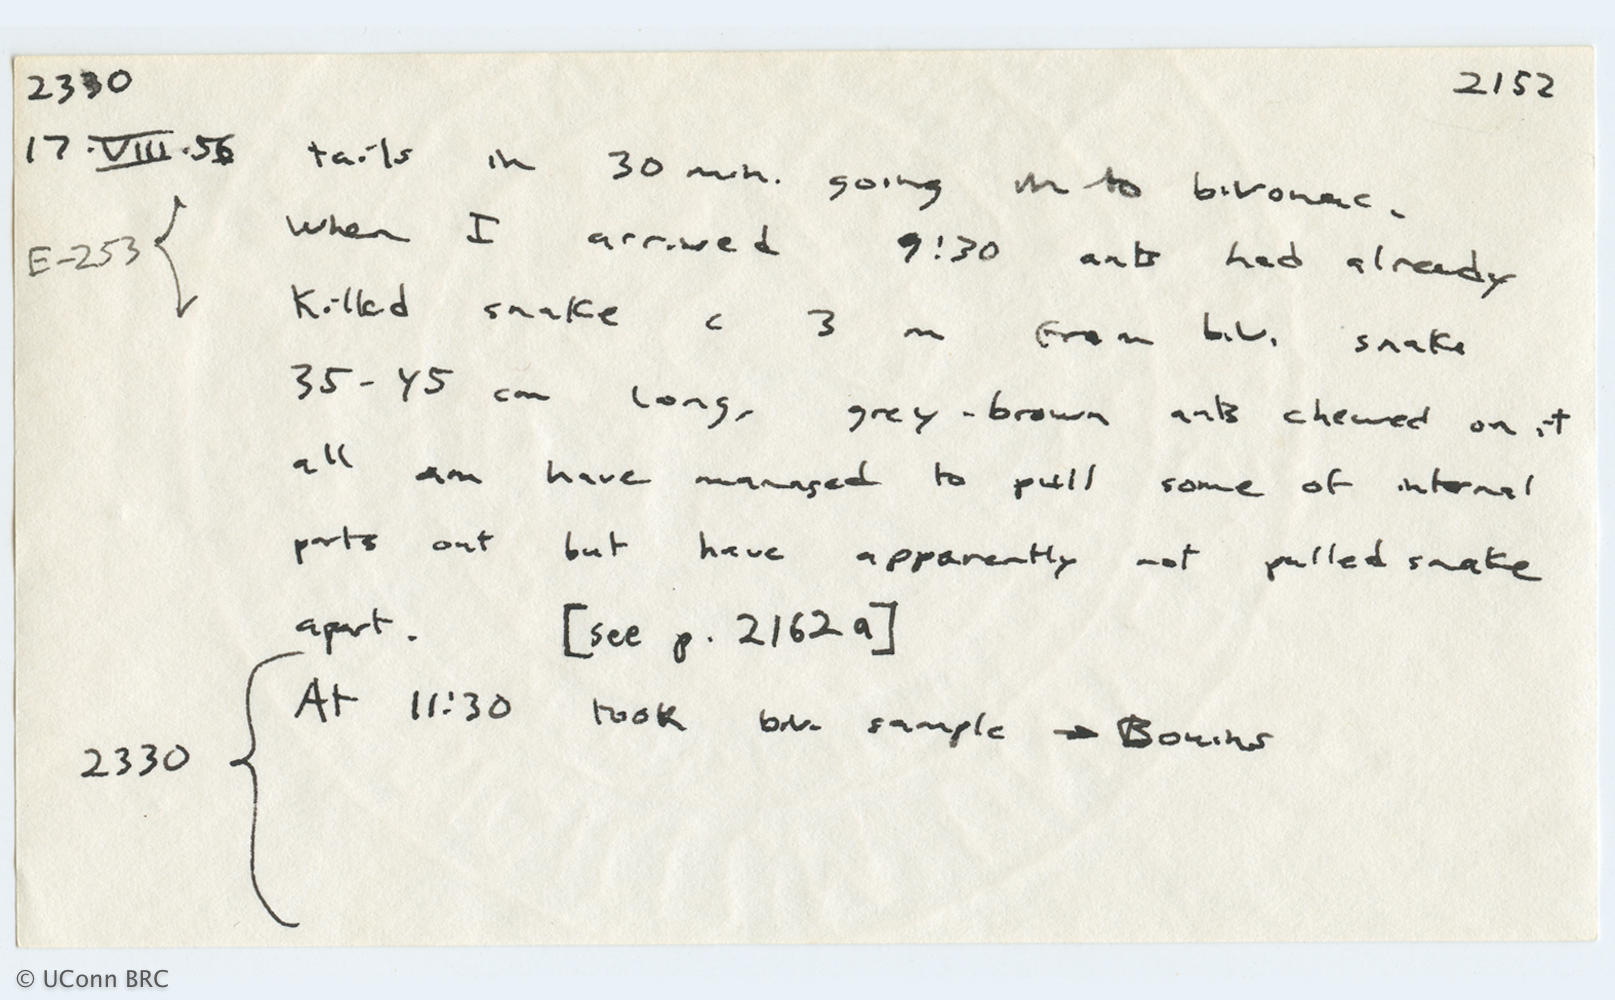 2330 2152
17.VIII.56 tails in 30 min. going in to bivouac.
E-253 When I arrived 9:30 ants had already
killed snake c 3 m from biv. snake
35-45 cm long, grey-brown ants chewed on it
all am have managed to pull some of internal
parts out but have apparently not pulled snake
apart. [see p. 2162a]
At 11:30 took biv. sample → Bouins
2330
© UConn BRC